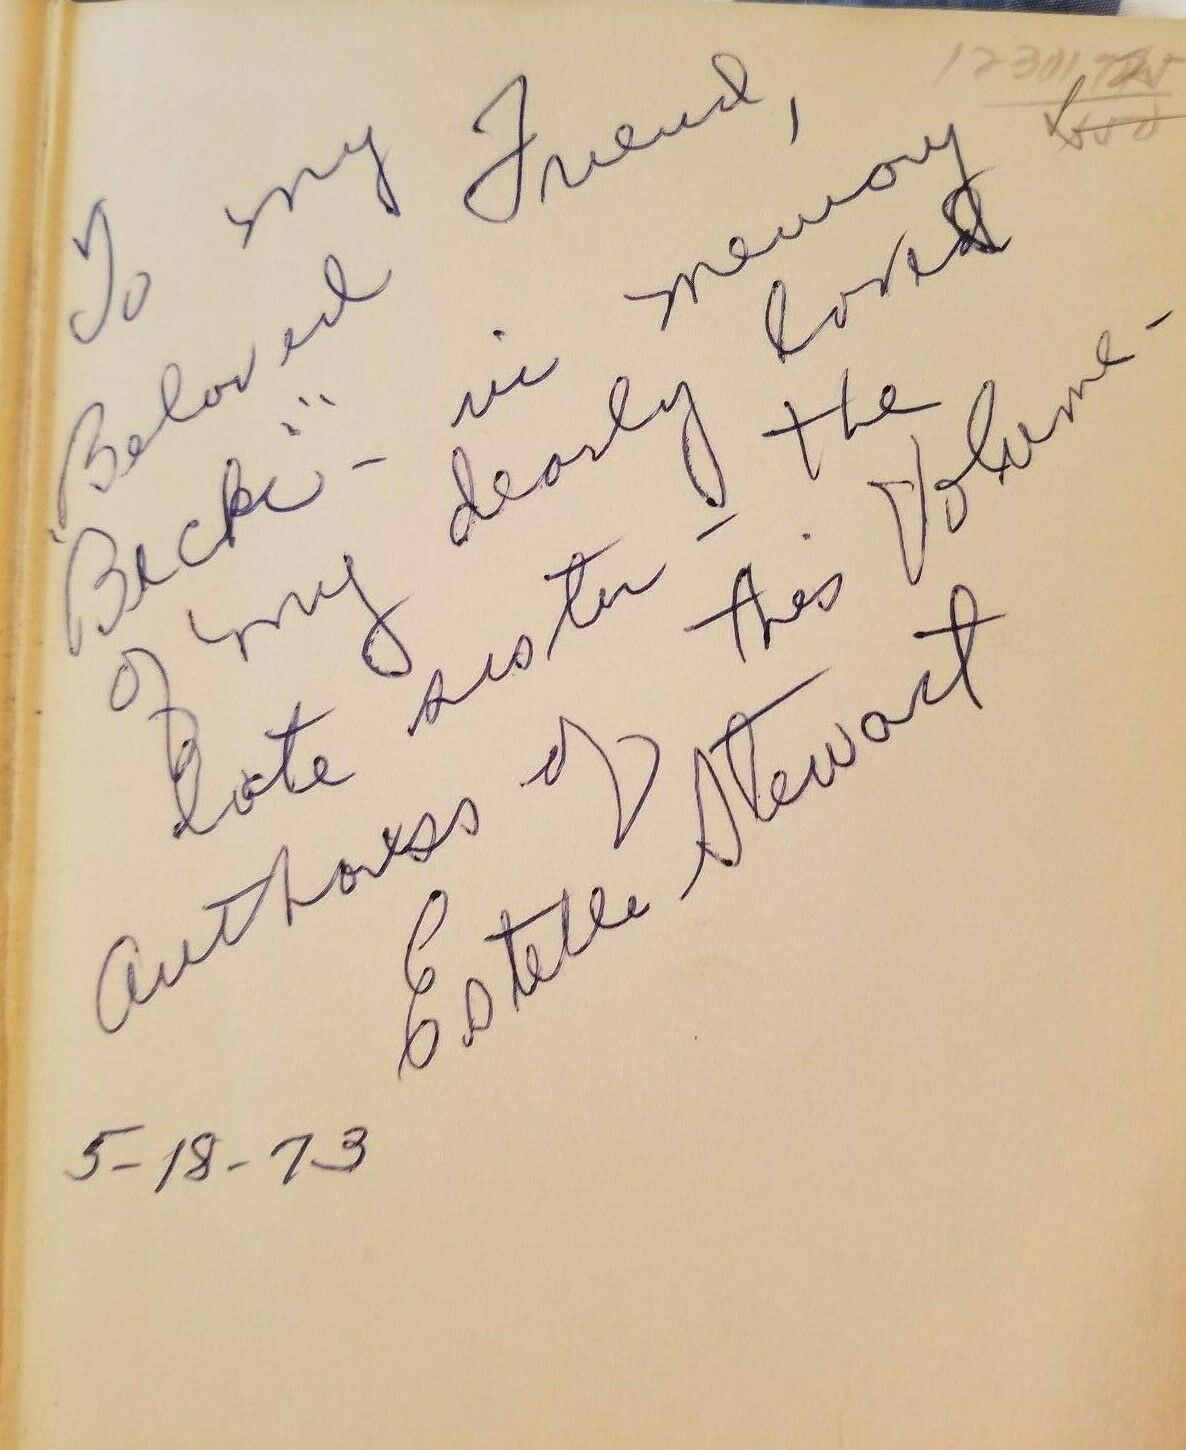 To my Friend,
Beloved
"Becki" - in memory
of my dearly loved
late sister - the
Authoress of this Volume -
Estelle Stewart
5-18-73